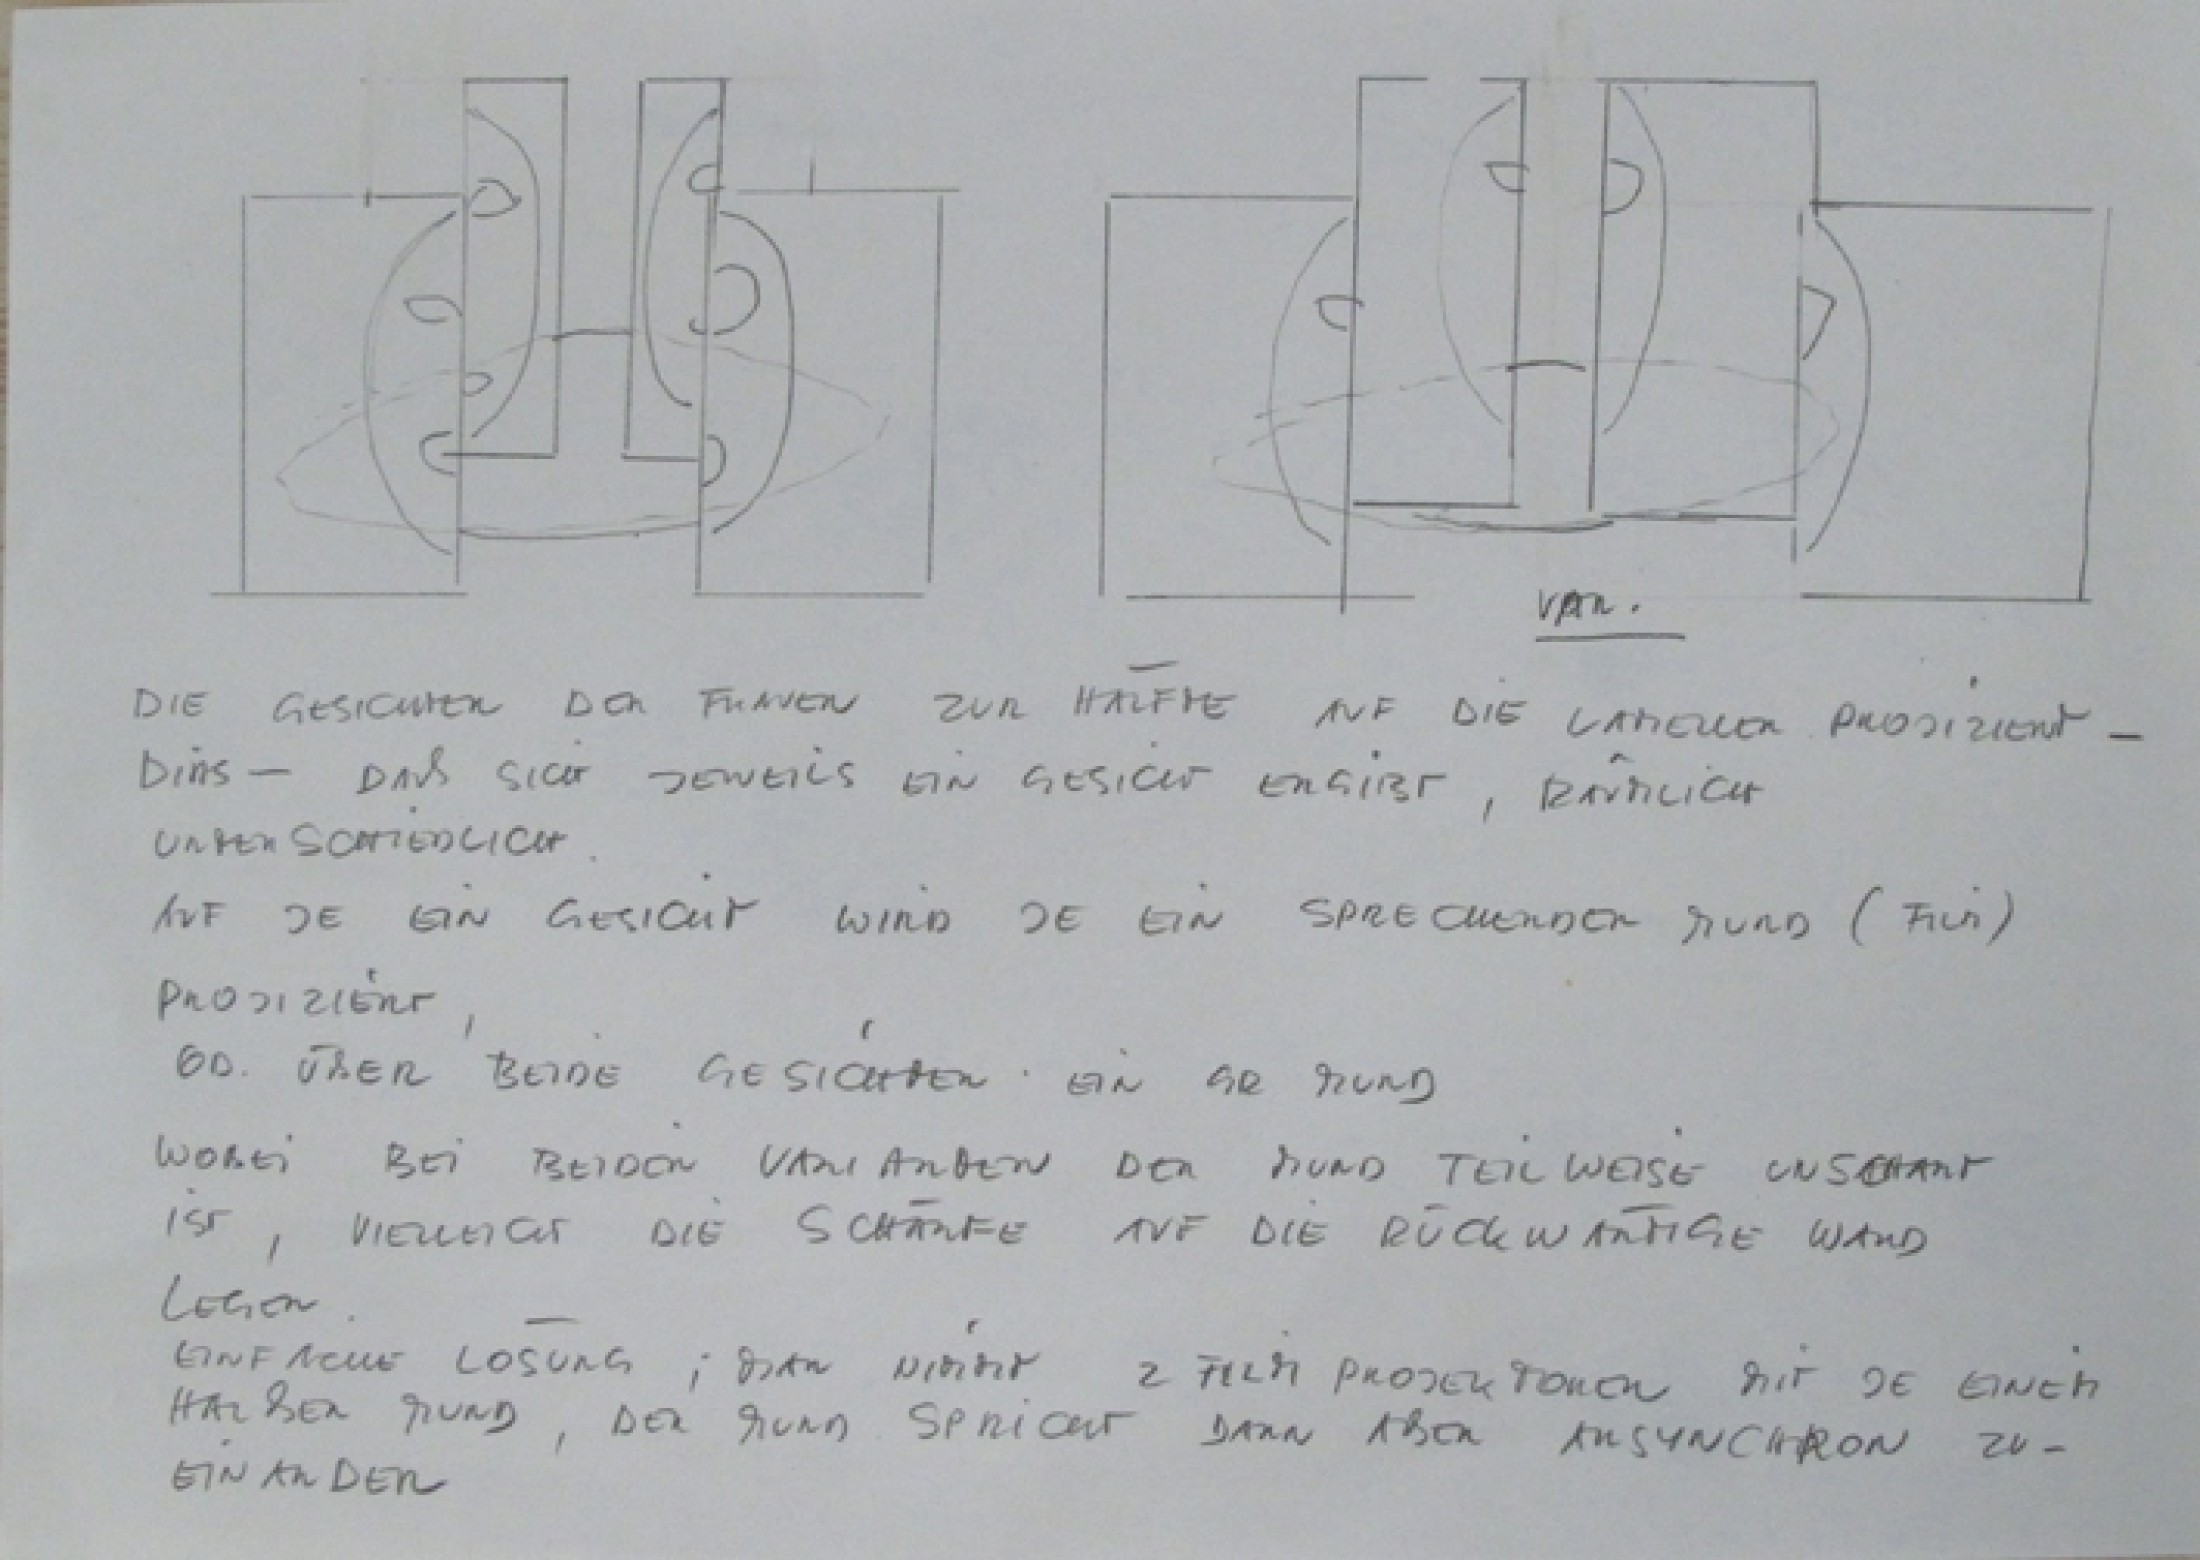 VAR.
DIE GESICHTER DER FRAUEN ZUR HÄLFTE AUF DIE LAMELLEN PROJIZIERT –
DIAS – DAß SICH JEWEILS EIN GESICHT ERGIBT, RÄUMLICH
UNTERSCHIEDLICH.
AUF JE EIN GESICHT WIRD JE EIN SPRECHENDER MUND (FILM)
PROJIZIERT,
OD. ÜBER BEIDE GESICHTER EIN GR MUND
WOBEI BEI BEIDEN VARIANTEN DER MUND TEILWEISE UNSCHARF
IST, VIELLEICHT DIE SCHÄRFE AUF DIE RÜCKWÄRTIGE WAND
LEGEN.
EINFACHE LÖSUNG; MAN NIMMT 2 FILM PROJEKTOREN MIT JE EINEM
HALBEN MUND, DER MUND SPRICHT DANN ABER ANSYNCHRON ZU-
EINANDER